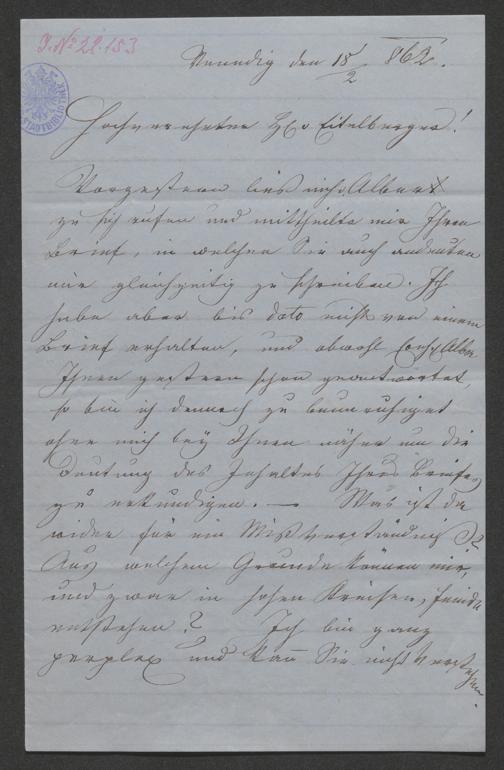 J. N° 22.153
STADTBIBLIOTHEK
Venedig den 18/2 862.
Hochverehrter H v Eitelberger!
Vorgestern ließ mich Albert
zu sich rufen und mittheilte mir Ihren
Brief, in welchen Sie auch andeuten
mir gleichzeitig zu schreiben. Ich
habe aber bis dato nicht von einem
Brief erhalten, und obwohl
Ihnen gestern schon geantwortet,
so bin ich dennoch zu beunruhiget
ohne mich bey Ihnen näher um die
Deutung des Inhaltes Ihres Briefes
zu erkundigen. — Was ist da
wieder für ein Mißverständniß?
Aus welchem Grunde können mir,
und zwar in hohen Kreisen, Feinde
entstehen? Ich bin ganz
perplex und kann Sie nicht verstehen.